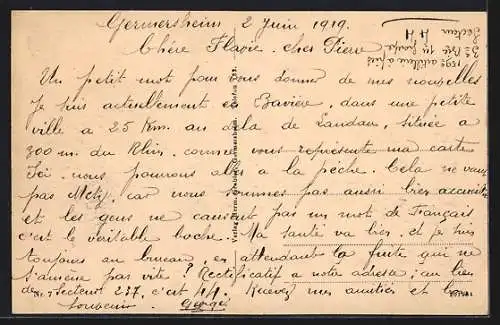 Germersheim 2 juin 1919.
Chère Flavie, cher Pierre
Un petit mot pour vous donner de mes nouvelles
Je suis actuellement en Bavière, dans une petite
ville a 25 Km. au dela de Landau, située a
300 m. du Rhin, comme vous représente ma carte
Ici, nous pouvons aller a la pêche. Cela ne vaut
pas Metz, car nous sommes pas aussi bien
et les gens ne causent pas un mot de Français
c'est le véritable boche. Ma santé va bien, et je suis
toujours au bureau, en attendant la fuite qui ne
s'amène pas vite? Rectificatif a notre adresse; au lieu
de Secteur 237, c'est 44. Recevez mes amitiés et bon
souvenir. Georges
artillerie a pied
3e Bie 1er groupe
Secteur 44
No. 7